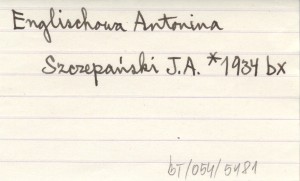 Englischowa Antonina
Szczepański J.A. *1934 bx
bT/054/5981